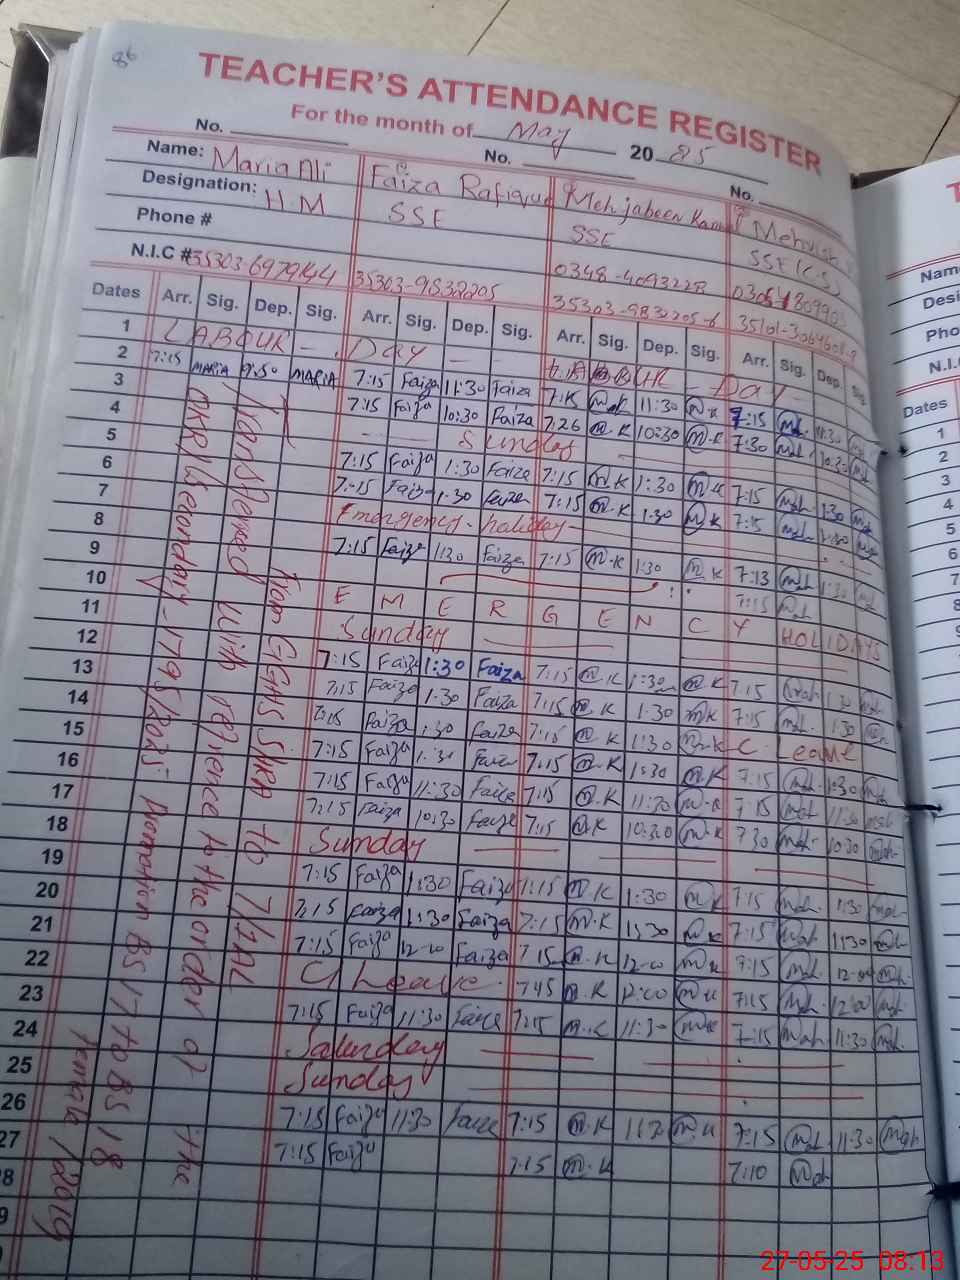 86
TEACHER'S ATTENDANCE REGISTER
For the month of May 20 25
No. No. No.
Name: Maria Ali Faiza Rafique Mehjabeen Kanwal Mehvish
Designation: H.M SSE SSE SSE (C.S)
Phone # 0348-4093228
N.I.C # 35303-6979144 35303-9832205 35303-9832205-6
Dates Arr. Sig. Dep. Sig. Arr. Sig. Dep. Sig. Arr. Sig. Dep. Sig. Arr. Sig. Dep. Sig.
1 LABOUR - Day - - LABOUR - Day -
2 7:15 MARIA MARIA 7:15 Faiza 11:30 Faiza 7:15 M.K 11:30 M.K 7:15 Meh. 11:30
3 7:15 Faiza 10:30 Faiza 7:26 M.K 10:30 M.K 7:30 Meh 10:30
4 Sunday
5 7:15 Faiza 1:30 Faiza 7:15 M.K 1:30 M.K 7:15 Meh. 1:30 Meh
6 7:15 Faiza 1:30 Faiza 7:15 M.K 1:30 M.K 7:15 Meh 1:30 Meh
7 Emergency - holiday -
8 7:15 Faiza 1:30 Faiza 7:15 M.K 1:30 M.K 7:13 Meh 1:30 Meh
9 7:15 Meh
10 EMERGENCY HOLIDAYS
11 Sunday
12 7:15 Faiza 1:30 Faiza 7:15 M.K 1:30 M.K 7:15 Meh 1:30 Meh
13 7:15 Faiza 1:30 Faiza 7:15 M.K 1:30 M.K 7:15 Meh. 1:30 Meh
14 7:15 Faiza 1:30 Faiza 7:15 M.K 1:30 M.K C. Leave
15 7:15 Faiza 1:30 Faiza 7:15 M.K 1:30 M.K 7:15 Meh 10:30 Meh
16 7:15 Faiza 11:30 Faiza 7:15 M.K 11:30 M.K 7:15 Meh 11:30 Meh
17 7:15 Faiza 10:30 Faiza 7:15 M.K 10:30 M.K 7:30 Meh 10:30 Meh
18 Sunday
19 7:15 Faiza 1:30 Faiza 7:15 M.K 1:30 M.K 7:15 Meh. 1:30 Meh
20 7:15 Faiza 1:30 Faiza 7:15 M.K 1:30 M.K 7:15 Meh 1:30 Meh
21 7:15 Faiza 12-00 Faiza 7:15 M.K 12-00 M.K 7:15 Meh. 12-00 Meh
22 C/Leave. 7:45 M.K 12:00 M.K 7:15 Meh 12:00 Meh
23 7:15 Faiza 11:30 Faiza 7:15 M.K 11:30 M.K 7:15 Meh 11:30 Meh.
24 Saturday
25 Sunday
26 7:15 Faiza 11:30 Faiza 7:15 M.K M.K 7:15 Meh 11:30 Meh
27 7:15 Faiza 7:15 M.K 7:10 Meh
8
9
Transferred from GGHS to
with refrence to the order of the
Secondary 1795/2025 Promotion BS 17 to BS 18
Female
Name
Desi
Pho
N.I.
Dates
1
2
3
4
5
6
7
8
9
10
11
12
13
14
15
16
17
18
19
27-05-25 08:13